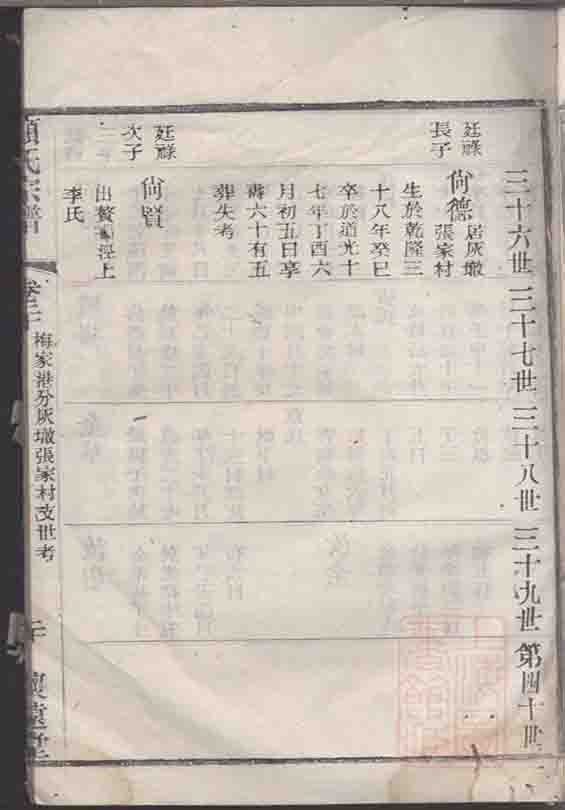 三十六世
三十七世
三十八世
三十九世
第四十世
廷祿
長子
尙德
居灰墩
張家村
生於乾隆三
十八年癸巳
卒於道光十
七年丁酉六
月初五日享
壽六十有五
葬失考
廷祿
次子
尙賢
出贅
涇上
李氏
氏宗譜
卷二十
梅家港分灰墩張家村支世考